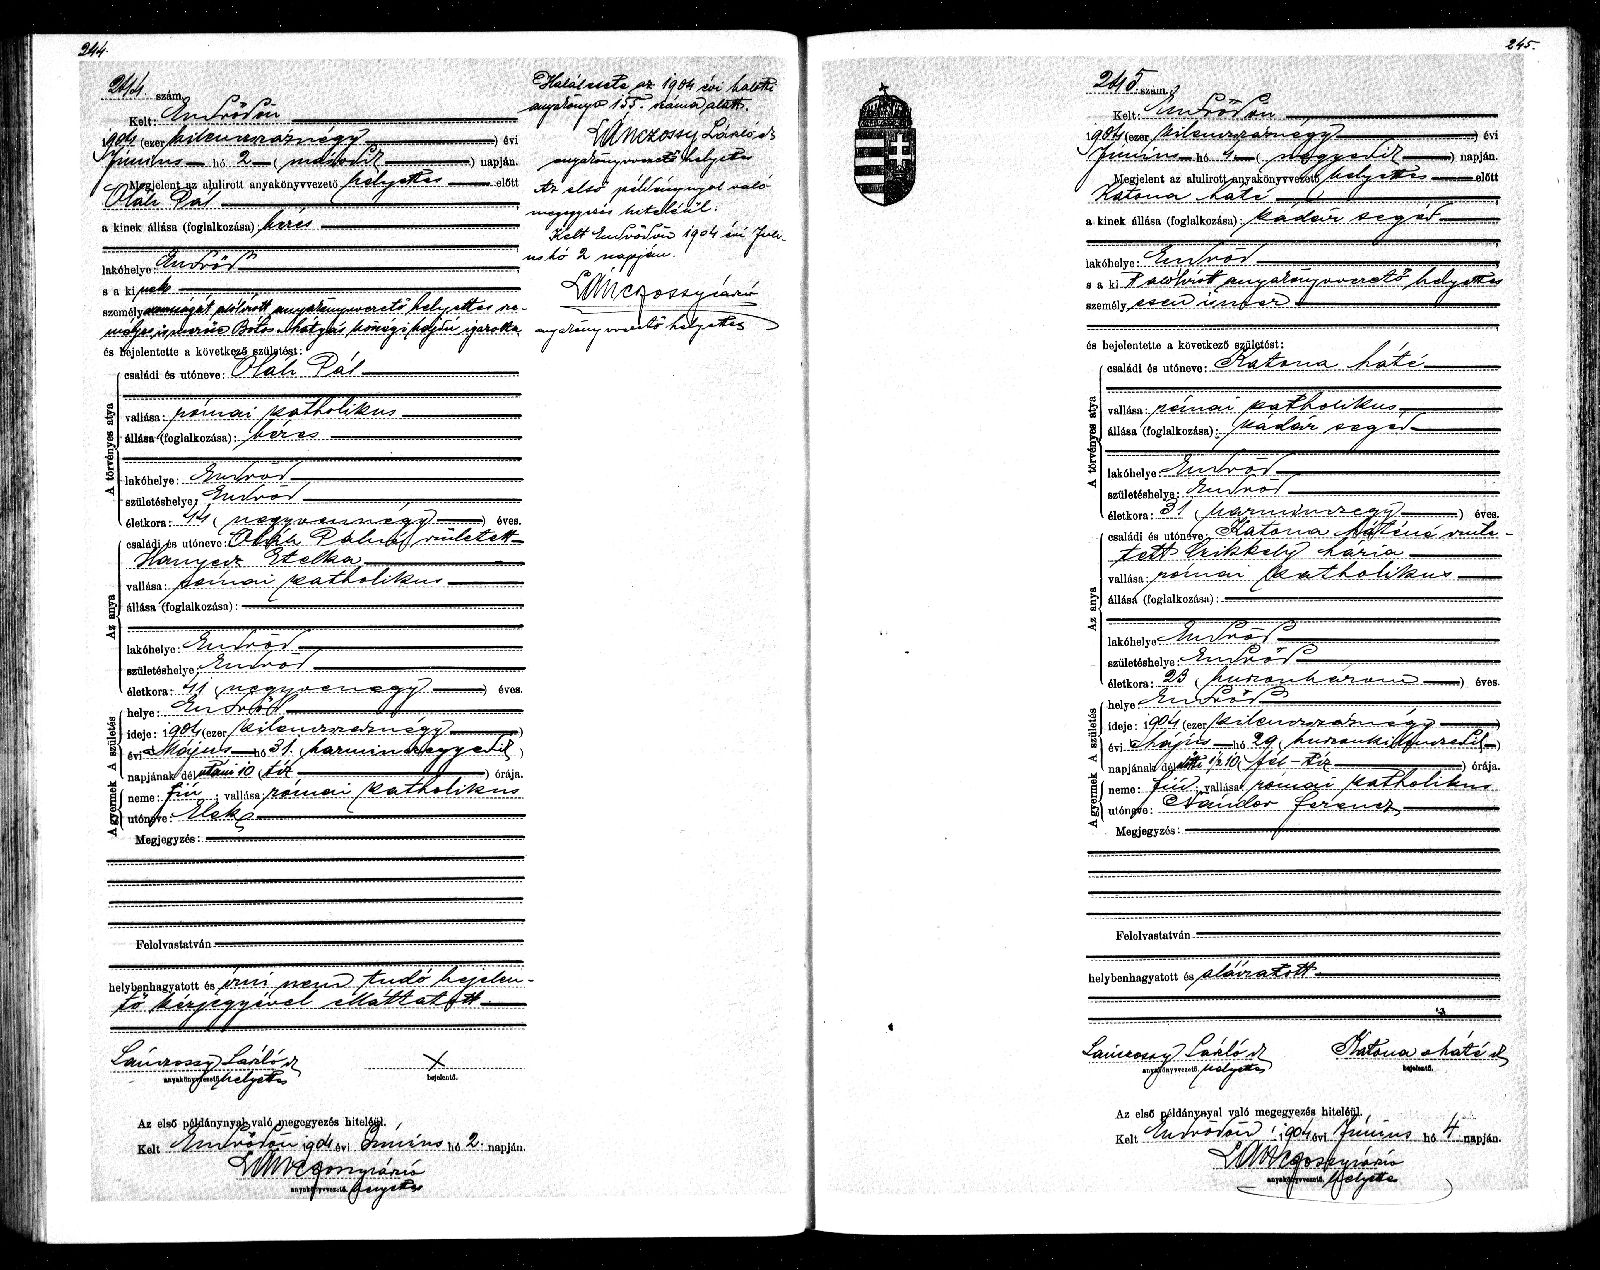 244.
244 szám.
Kelt: Endrődön
1904 (ezer kilenczszáznégy) évi
Június hó 2 (második) napján.
Megjelent az alulirott anyakönyvvezető helyettes előtt
Oláh Pál
a kinek állása (foglalkozása) béres
lakóhelye: Endrőd
s a ki nek
személyazonosságát alólírott anyakönyvvezető helyettes sze-
mélyes ismerőse Bólos Mátyás községi hajdu igazolta,
és bejelentette a következő születést:
A törvényes atya
családi és utóneve: Oláh Pál
vallása: római katholikus
állása (foglalkozása): béres
lakóhelye: Endrőd
születéshelye: Endrőd
életkora: 44 (negyvennégy) éves.
Az anya
családi és utóneve: Oláh Pálné született
Hanyecz Etelka
vallása: római katholikus
állása (foglalkozása):
lakóhelye: Endrőd
születéshelye: Endrőd
életkora: 41 (negyvenegy) éves.
A születés
helye: Endrőd
ideje: 1904 (ezer kilenczszáznégy)
évi Május hó 31. (harminczegyedik)
napjának délutáni 10 (tíz) órája.
A gyermek
neme: fiú; vallása: római katholikus
utóneve: Elek
Megjegyzés:
Felolvastatván
helybenhagyatott és írni nem tudó bejelen-
tő kézjegyével elláttatott
Lánczossy László sk
anyakönyvvezető helyettes
X
bejelentő.
Az első példánynyal való megegyezés hiteléül.
Kelt Endrődön 1904 évi Június hó 2. napján.
Lánczossy László
anyakönyvvezető helyettes
Halálesete az 1904 évi haláti
anyakönyv 155. száma alatt.
Lánczossy László sk
anyakönyvvezető helyettes
Az első példánynyal való
megegyezés hiteléül.
Kelt Endrődön 1904 évi Juli-
us hó 2 napján.
Lánczossy László
anyakönyvvezető helyettes
245.
245 szám.
Kelt: Endrődön
1904 (ezer kilenczszáznégy) évi
Június hó 4 (negyedik) napján.
Megjelent az alulirott anyakönyvvezető helyettes előtt
Katona Máté
a kinek állása (foglalkozása): kádár segéd
lakóhelye: Endrőd
s a ki t alólírott anyakönyvvezető helyettes
személyesen ismer
és bejelentette a következő születést:
A törvényes atya
családi és utóneve: Katona Máté
vallása: római katholikus
állása (foglalkozása): kádár segéd
lakóhelye: Endrőd
születéshelye: Endrőd
életkora: 31 (harminczegy) éves.
Az anya
családi és utóneve: Katona Máténé szüle-
tett Czikkely Mária
vallása: római katholikus
állása (foglalkozása):
lakóhelye: Endrőd
születéshelye: Endrőd
életkora: 23 (huszonhárom) éves.
A születés
helye: Endrőd
ideje: 1904 (ezer kilenczszáznégy)
évi Május hó 29 (huszonkilenczedik)
napjának délelőtti 1/2 10 (fél-tíz) órája.
A gyermek
neme: fiú; vallása: római katholikus
utóneve: Nándor Ferencz
Megjegyzés:
Felolvastatván
helybenhagyatott és aláíratott
Lánczossy László sk
anyakönyvvezető helyettes
Katona Máté sk
bejelentő.
Az első példánynyal való megegyezés hiteléül.
Kelt Endrődön 1904 évi Június hó 4 napján.
Lánczossy László
anyakönyvvezető helyettes